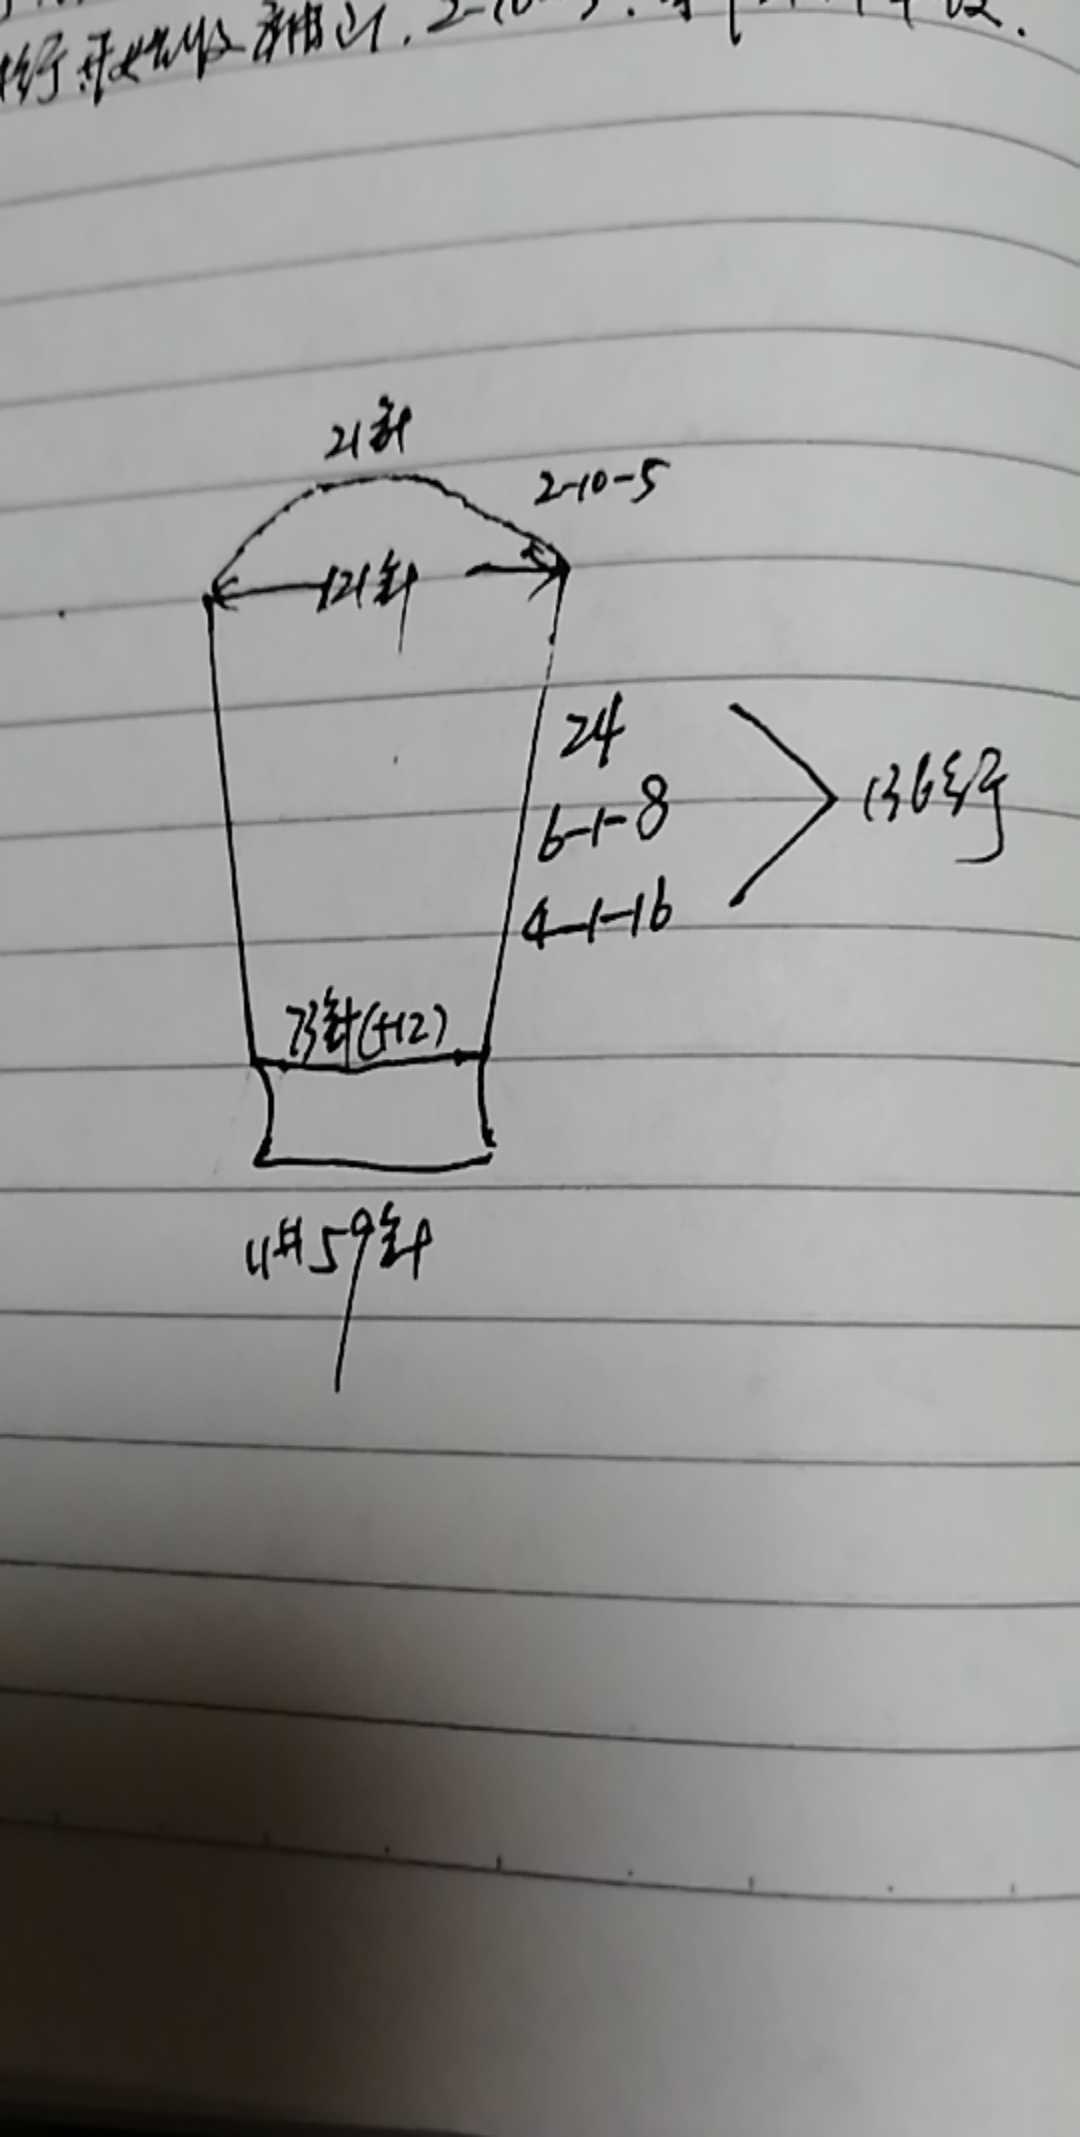 行开始收袖山.2-10-5.
21针
2-10-5
121针
24
6-1-8
136行
4-1-16
73针(+12)
11#59针